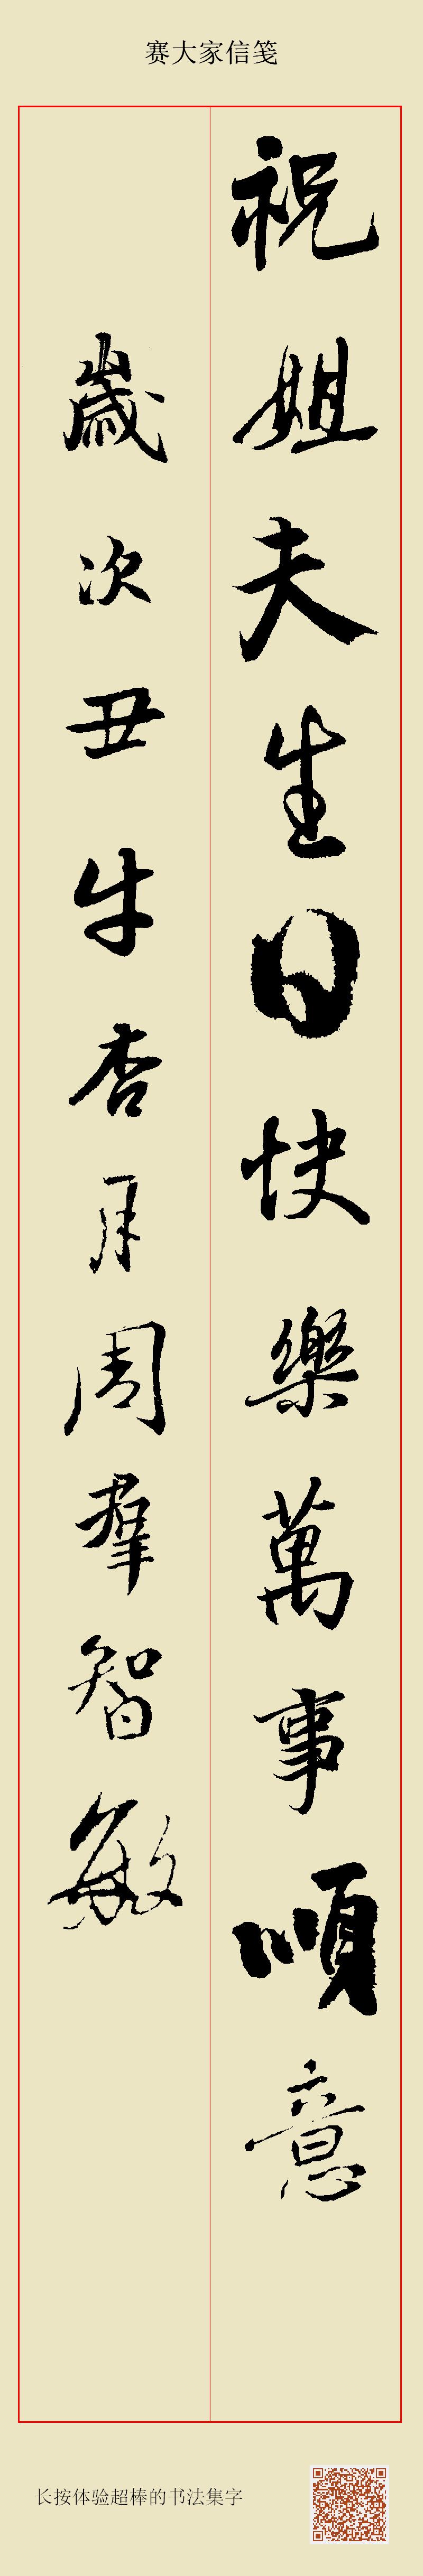 赛大家信笺
祝姐夫生日快樂萬事順意
歲次丑牛杏月周羣智敏
长按体验超棒的书法集字